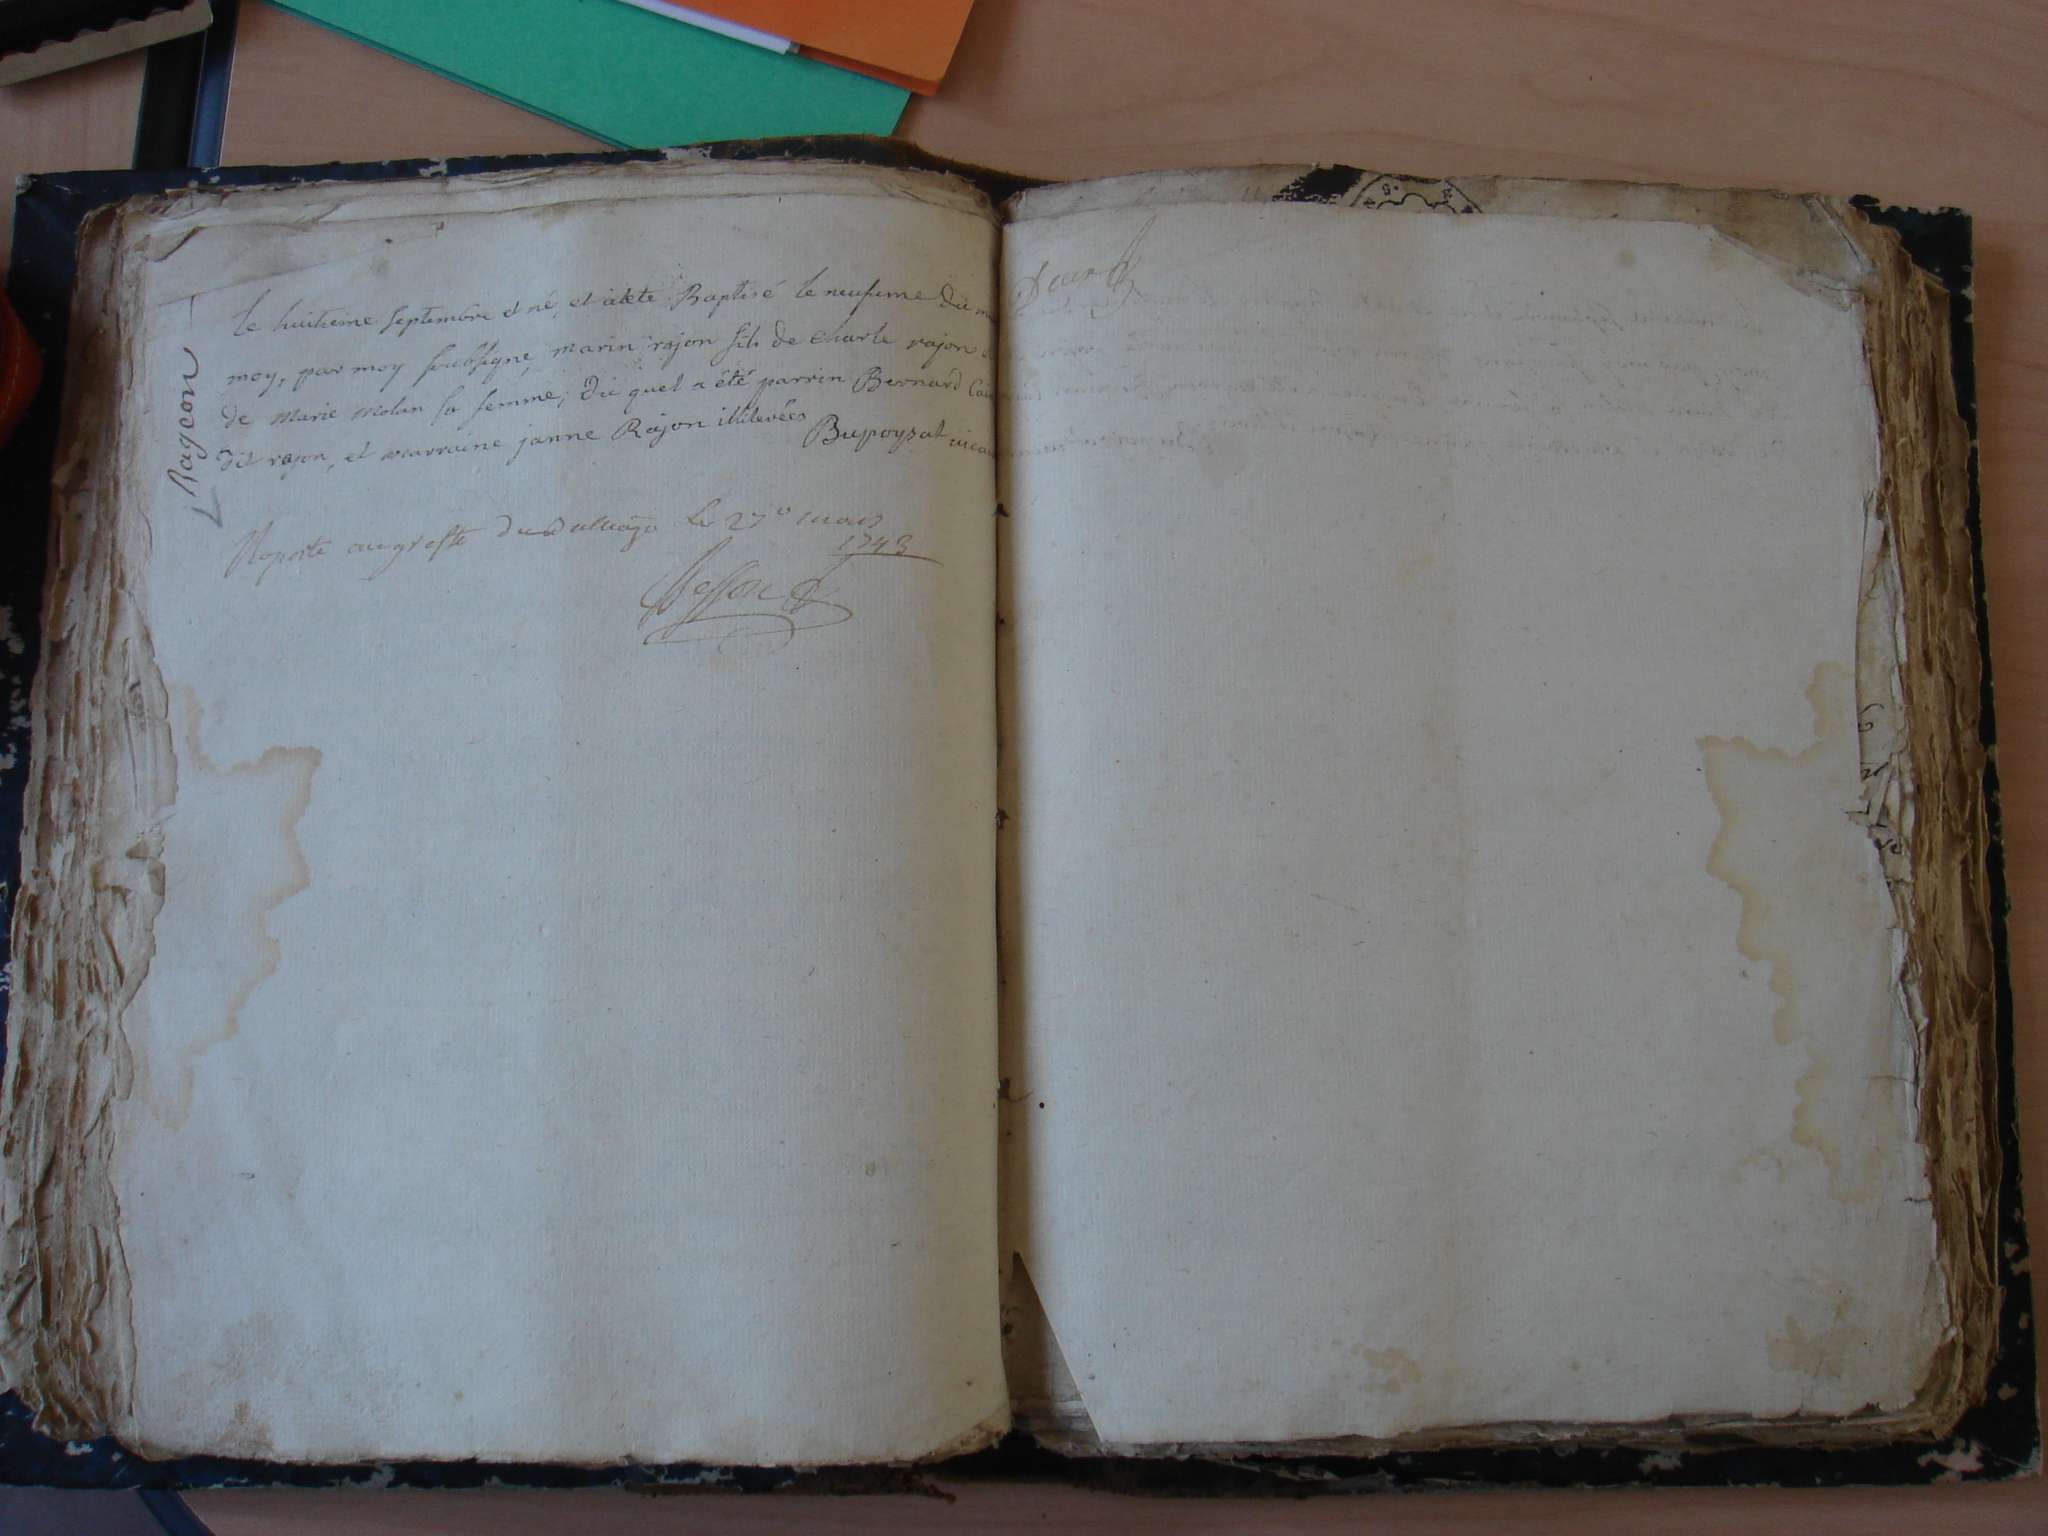 Rageon
Le huitieme Septembre est né, et aiete Baptisé le neufieme du
moy, par moy soubsigne, marin rajon fils de Charle rajon
de Marie molan sa femme, du quel a été parrin Bernard
dit rajon, et marraine janne Rajon illiterées Bupoysat
Raporte au greffe du le 27e mars
1743
Besson